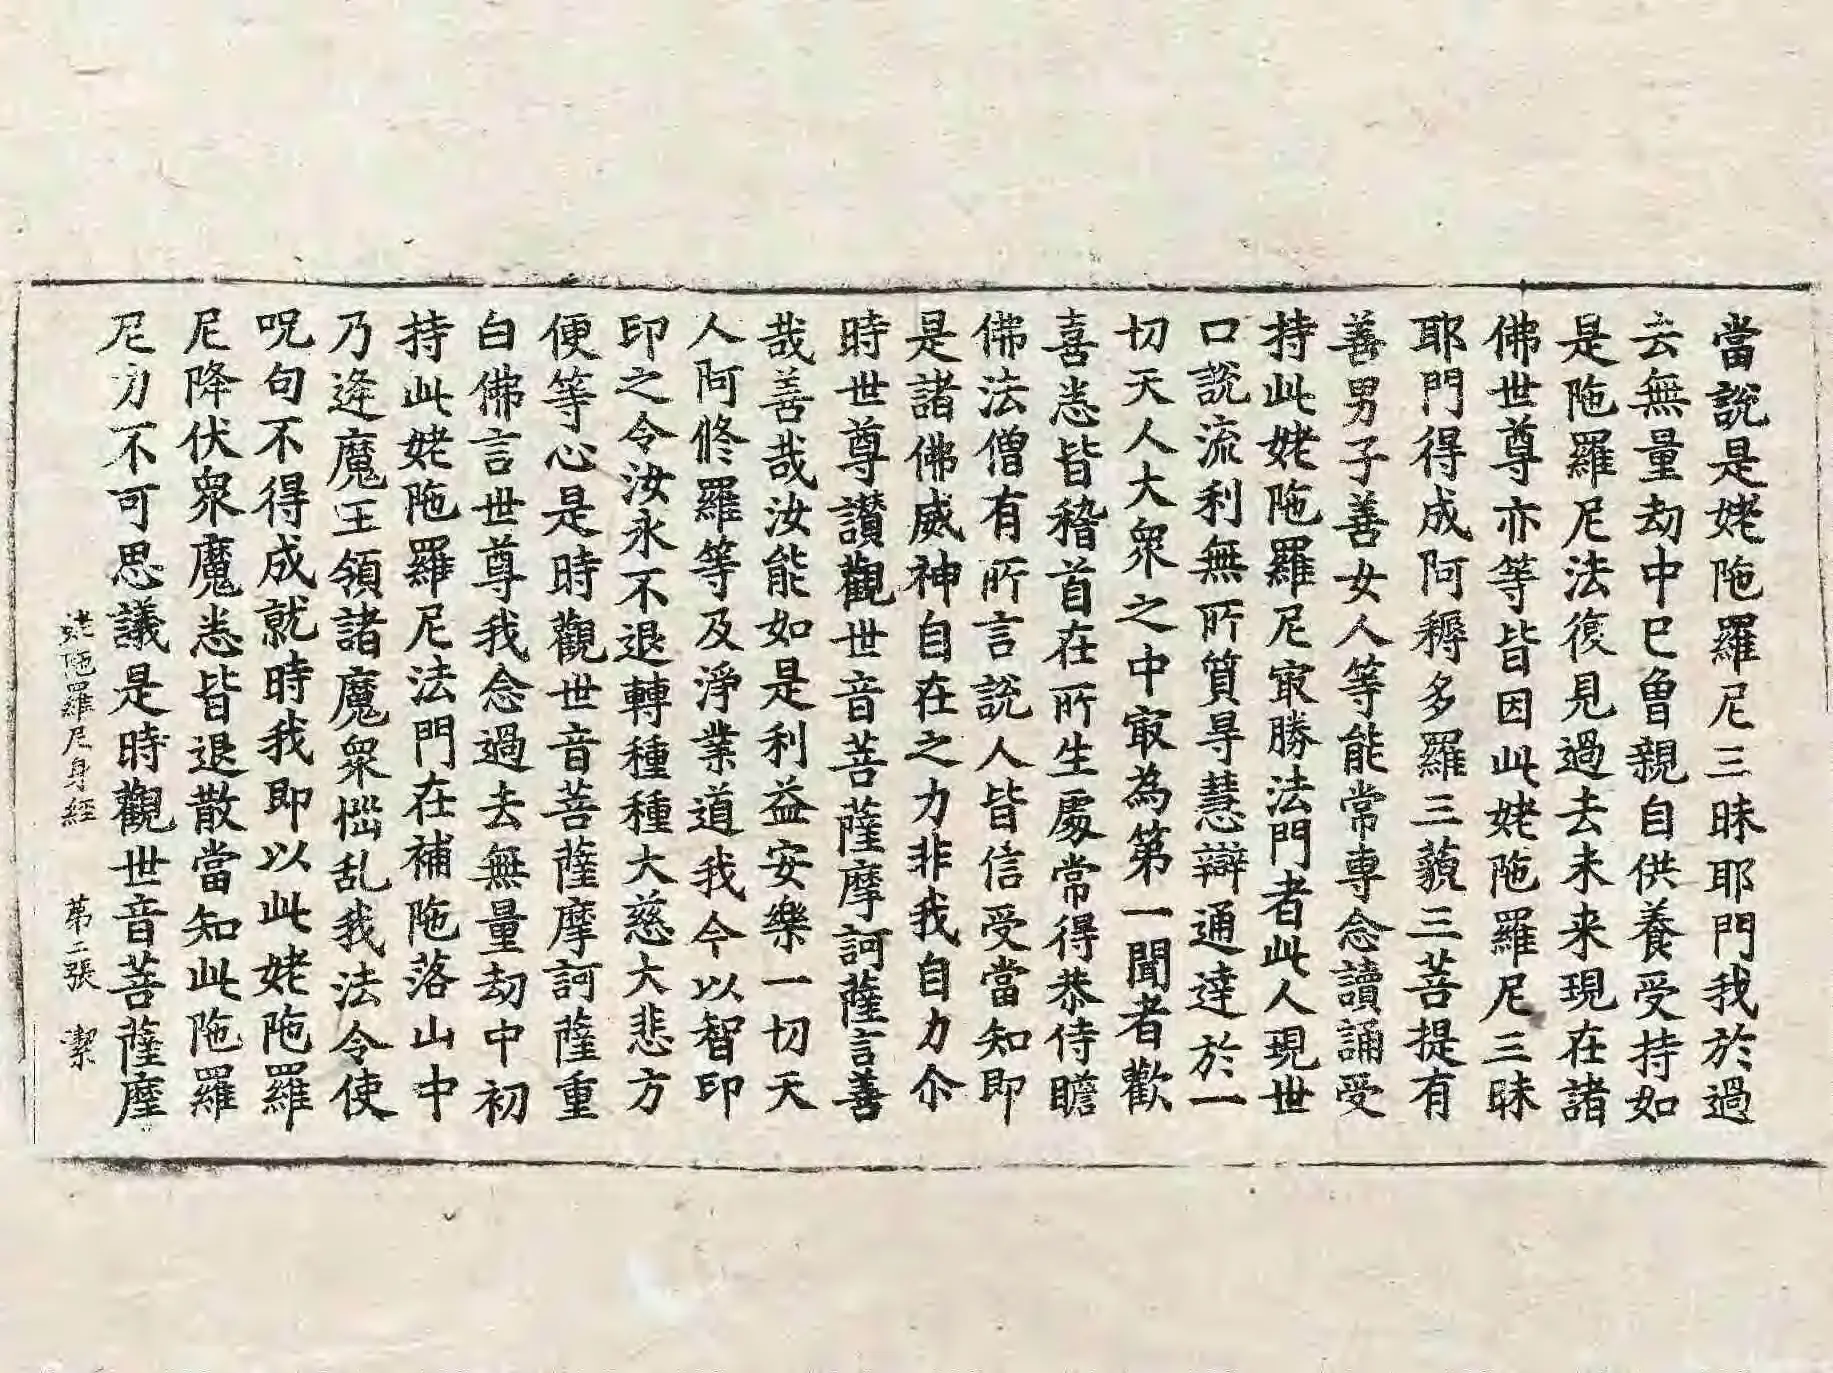 當說是姥陁羅尼三昧耶門我於過
去無量劫中已曾親自供養受持如
是陁羅尼法復見過去未来現在諸
佛世尊亦等皆因此姥陁羅尼三昧
耶門得成阿耨多羅三藐三菩提有
善男子善女人等能常專念讀誦受
持此姥陁羅尼㝡勝法門者此人現世
口說流利無所質导慧辯通達於一
切天人大衆之中㝡為第一聞者歡
喜悉皆稽首在所生處常得恭侍瞻
佛法僧有所言說人皆信受當知即
是諸佛威神自在之力非我自力尒
時世尊讃觀世音菩薩摩訶薩言善
哉善哉汝能如是利益安樂一切天
人阿修羅等及淨業道我今以智印
印之令汝永不退轉種種大慈大悲方
便等心是時觀世音菩薩摩訶薩重
白佛言世尊我念過去無量劫中初
持此姥陁羅尼法門在補陁落山中
乃逄魔王領諸魔衆惱乱我法令使
呪句不得成就時我即以此姥陁羅
尼降伏衆魔悉皆退散當知此陁羅
尼力不可思議是時觀世音菩薩摩
姥陁羅尼身經 第二張 潔